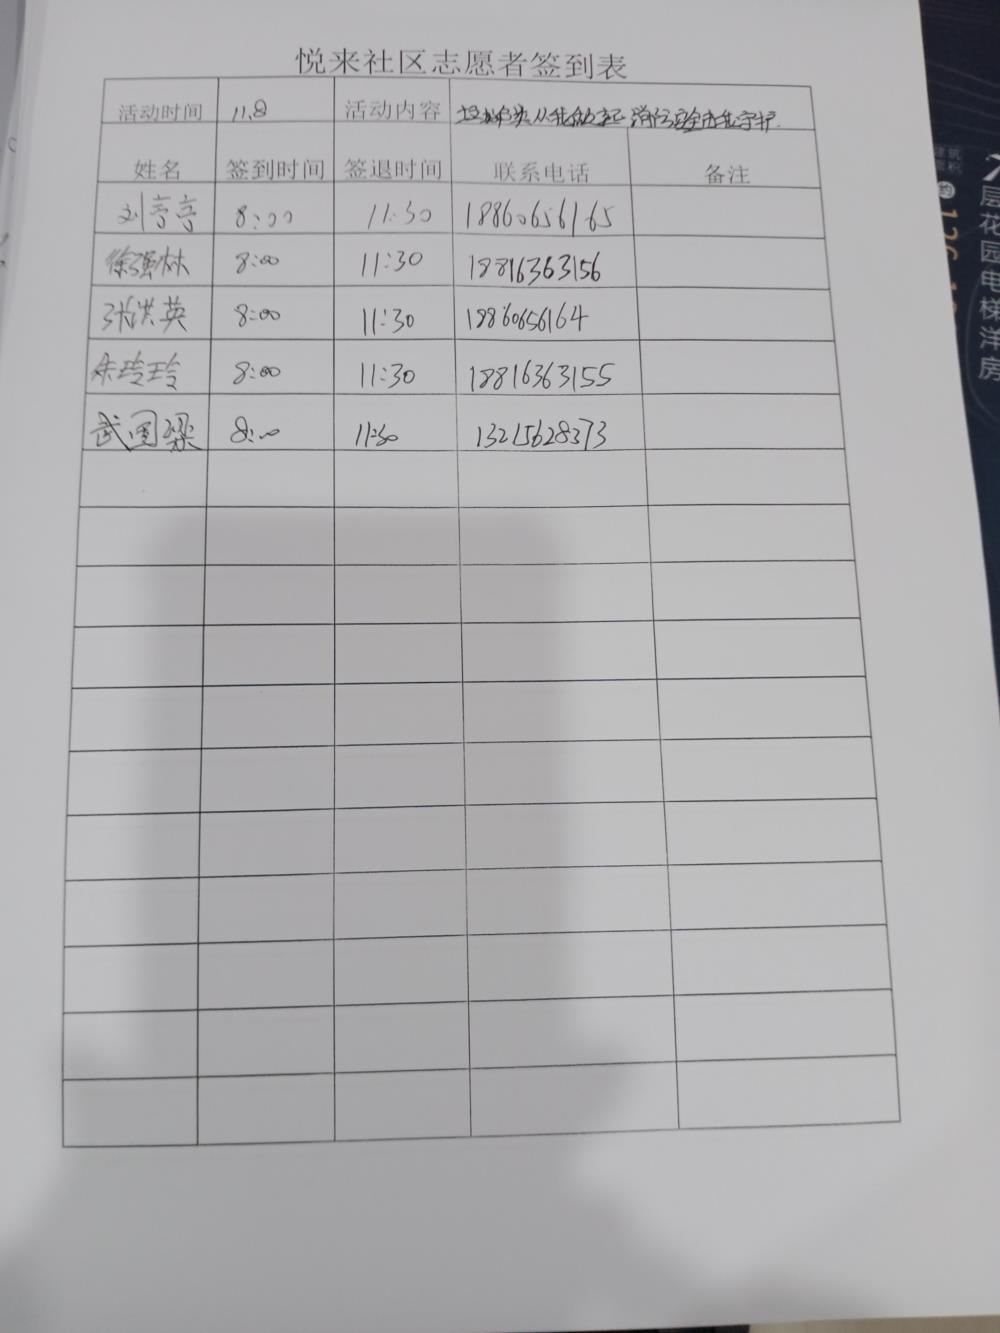 悦来社区志愿者签到表
活动时间 11.8 活动内容 垃圾分类从我做起 消防安全由我守护
姓名 签到时间 签退时间 联系电话 备注
刘亭亭 8:00 11:30 18860656165
徐强林 8:00 11:30 18816363156
张洪英 8:00 11:30 18860656164
朱玲玲 8:00 11:30 18816363155
武国梁 8:00 11:30 13215628373
建筑
面积
约
层花园电梯洋房